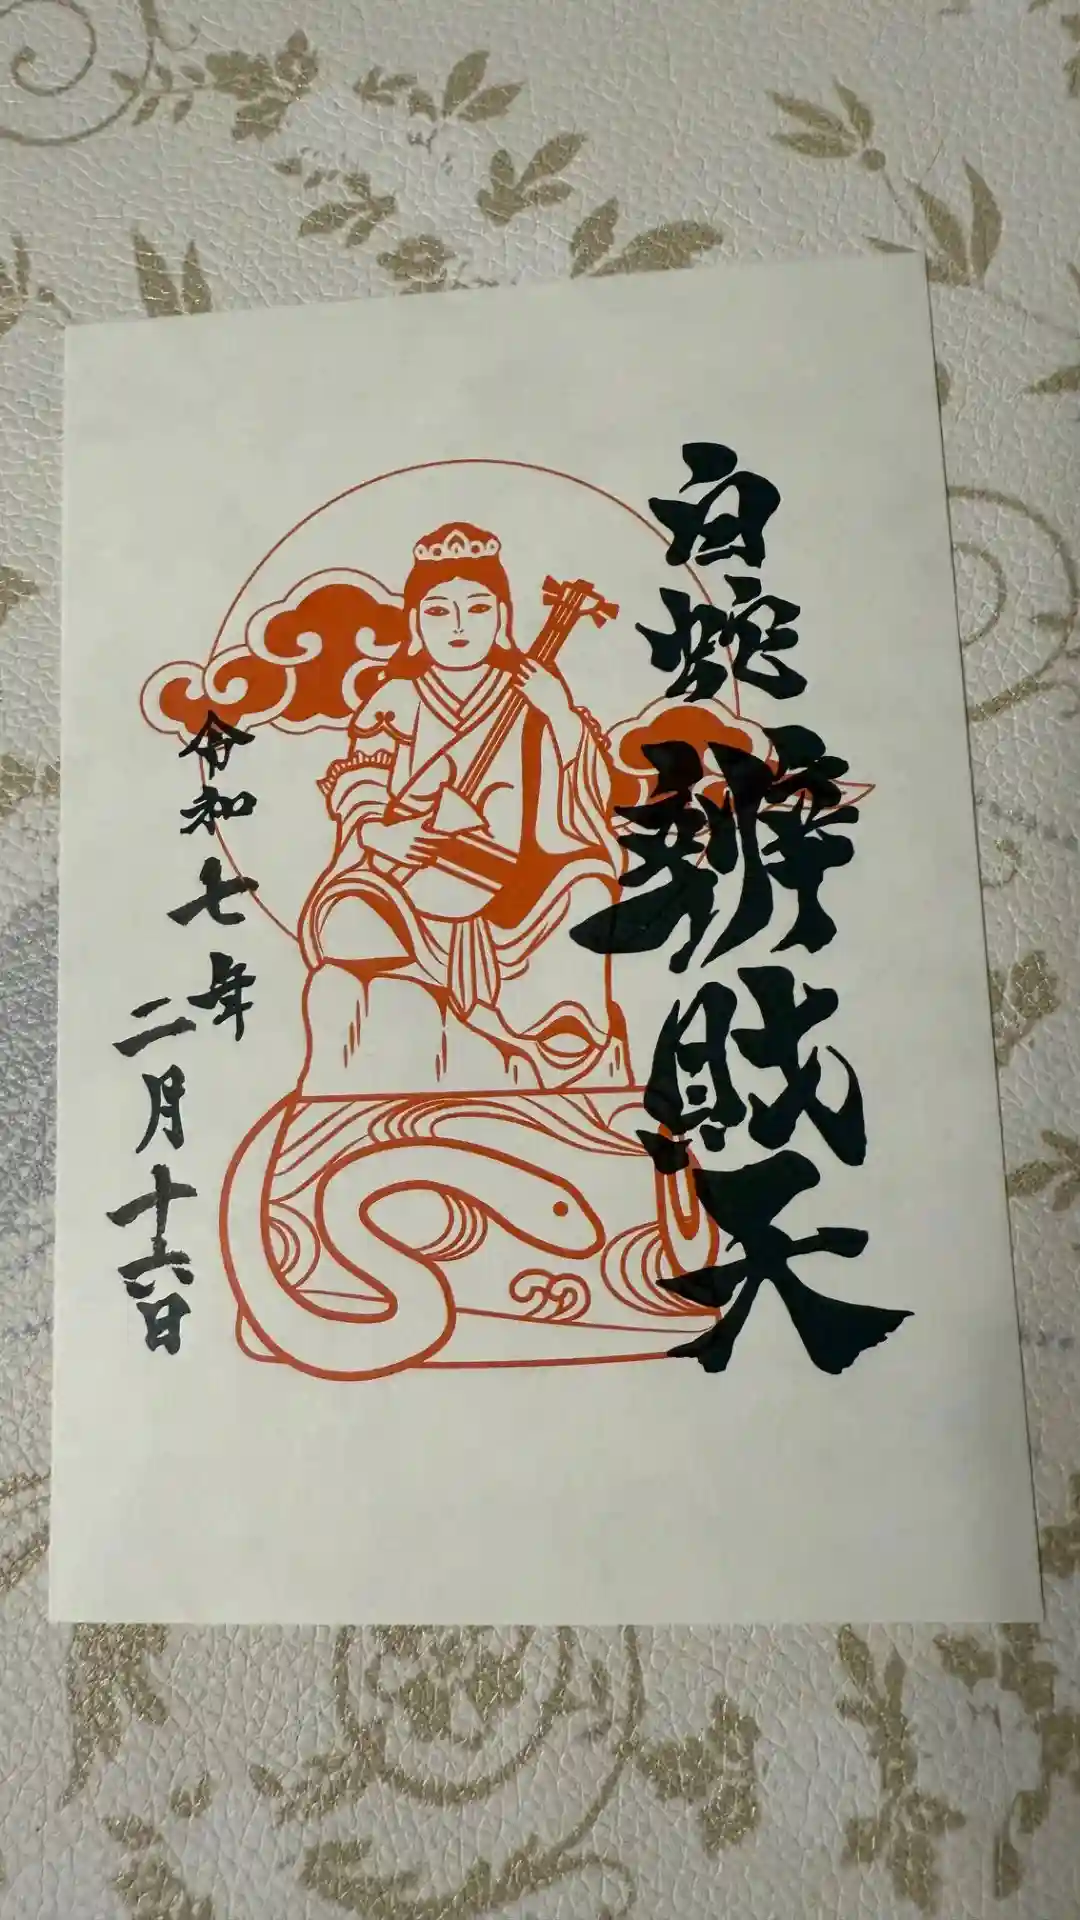 白蛇辨財天
令和七年
二月十六日